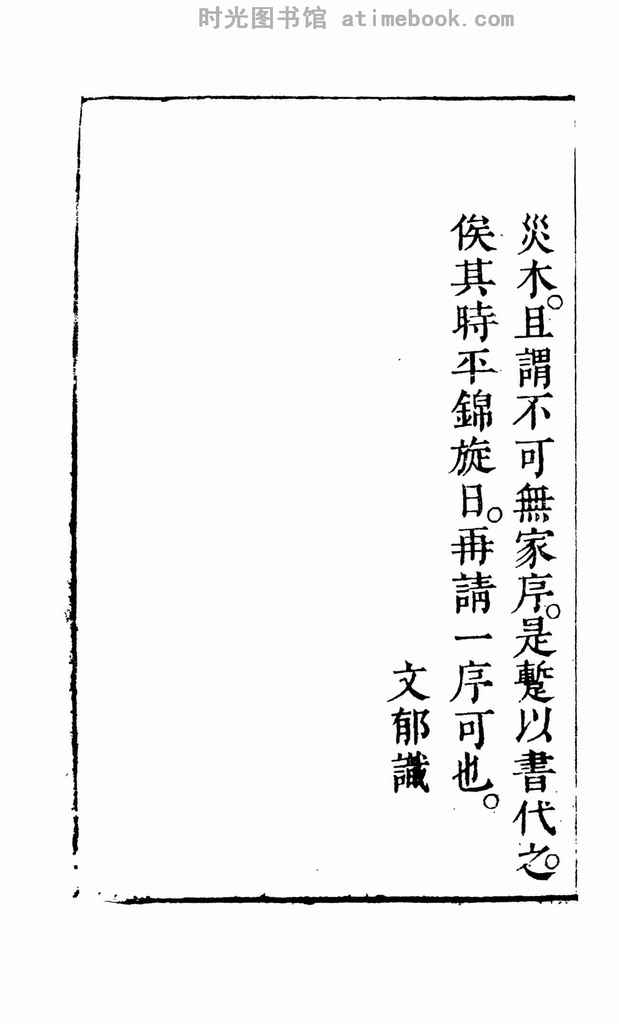 时光图书馆 atimebook.com
災木。且謂不可無家序。是蹔以書代之。
俟其時平錦旋日。再請一序可也。
文郁識